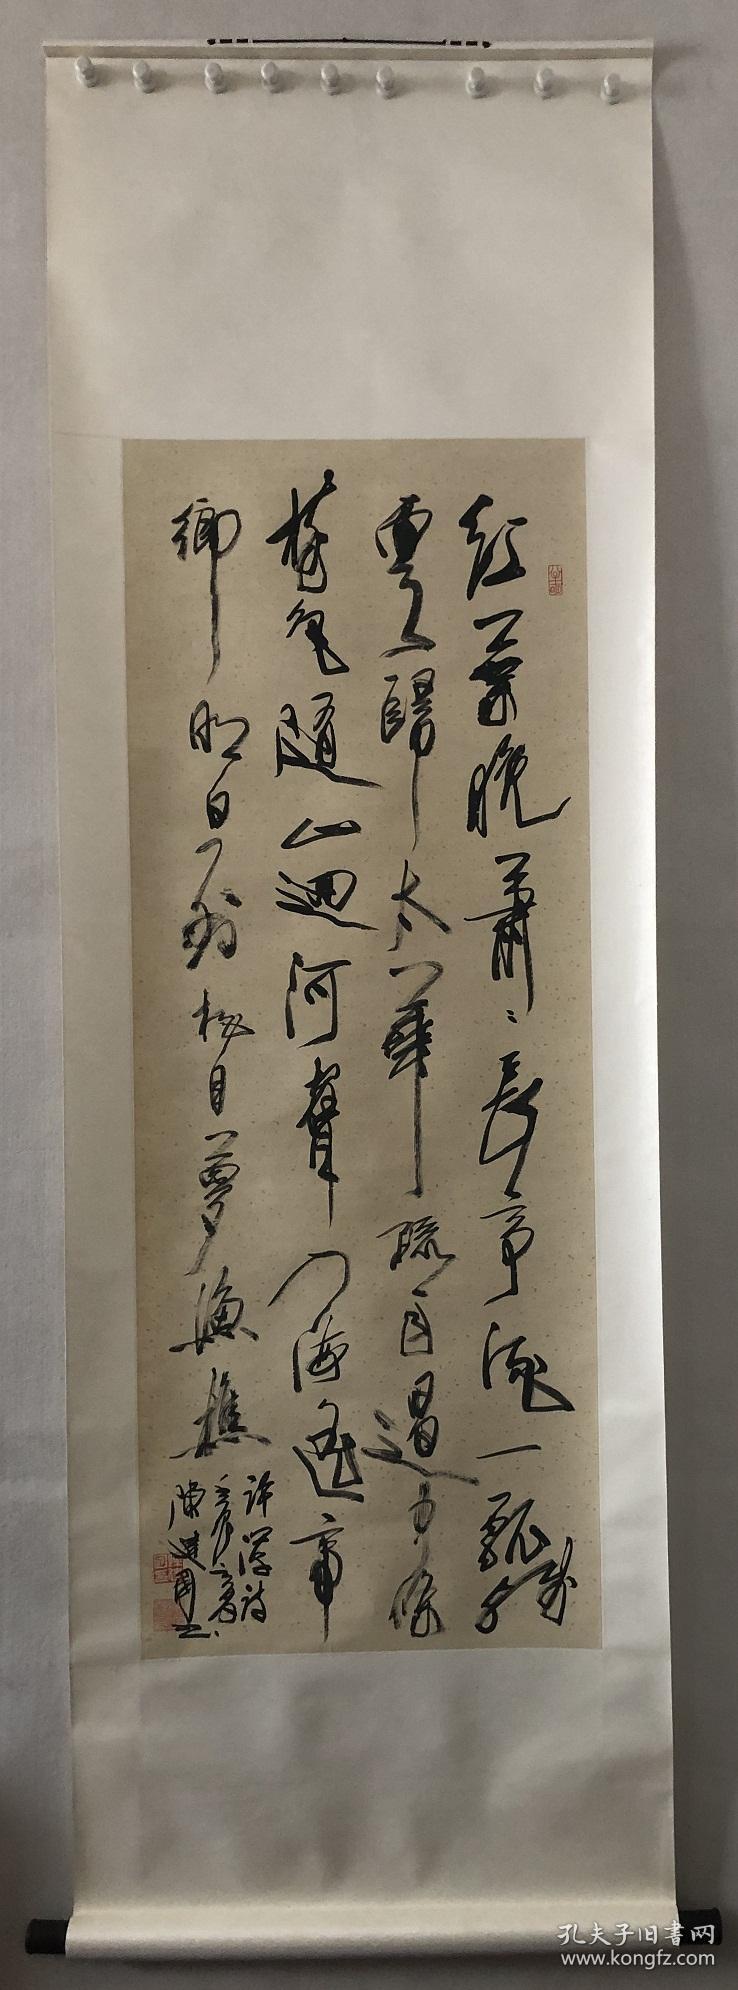 红葉晚蕭〻長亭酒一瓢残
雲歸太華疏雨過中條
樹色随山迥河聲入海遥帝
鄉明日到猶自夢漁樵
許渾詩
陳建国書
孔夫子旧書网
www.kongfz.com